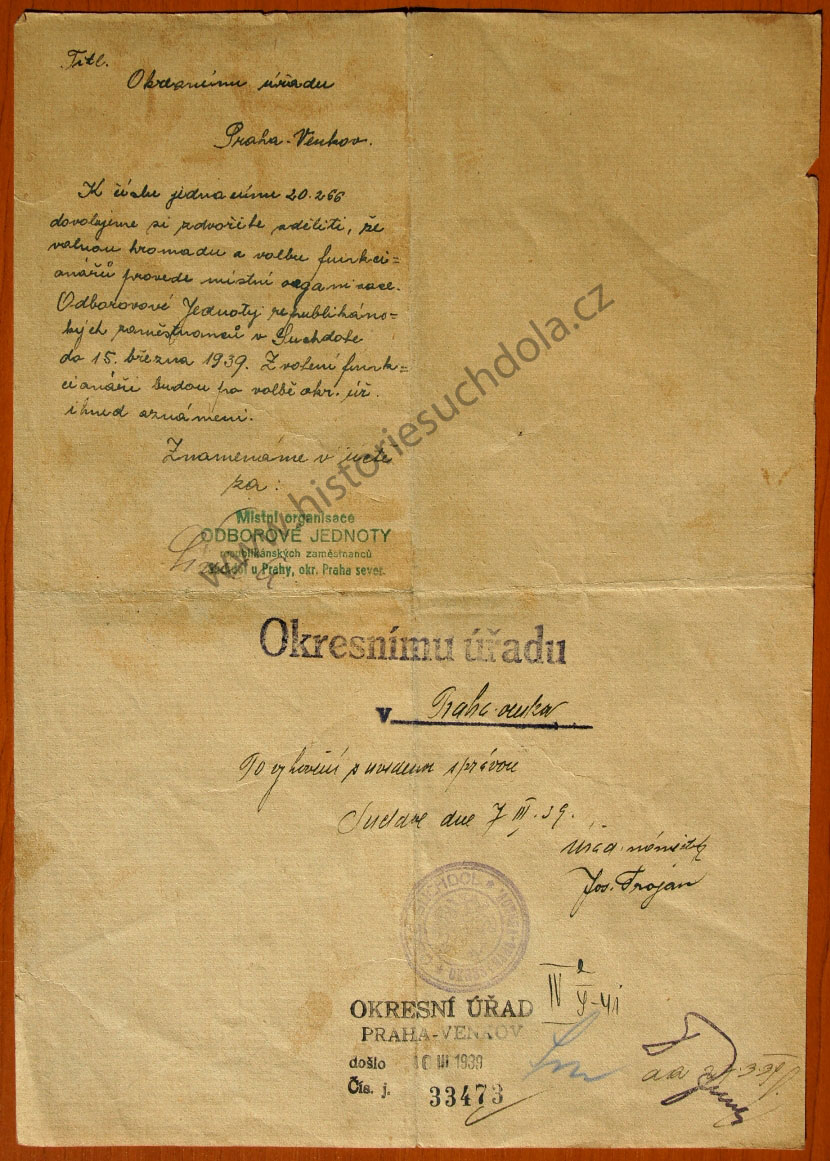 Titl.
Okresnímu úřadu
Praha-Venkov.
K číslu jednacímu 20.266
dovolujeme si zdvořile sděliti, že
valnou hromadu a volbu funkci=
onářů provede místní organisace.
Odborové Jednoty republikáns-
kých zaměstnanců v Suchdole
do 15. března 1939. Zvolení funk=
cionáři budou po volbě okr. úř.
ihned oznámeni.
Znamenáme v úctě
za:
Místní organisace
ODBOROVÉ JEDNOTY
republikánských zaměstnanců
Suchdol u Prahy, okr. Praha sever.
www.historiesuchdola.cz
Okresnímu úřadu
v Praha-venkov
Po vyhovění s uvedenou zprávou
dne 7 III. 39.
Jos. Trojan
SUCHDOL
IV
OKRESNÍ ÚŘAD
PRAHA-VENKOV
došlo 10 III 1939
Čís. j. 33473
a a